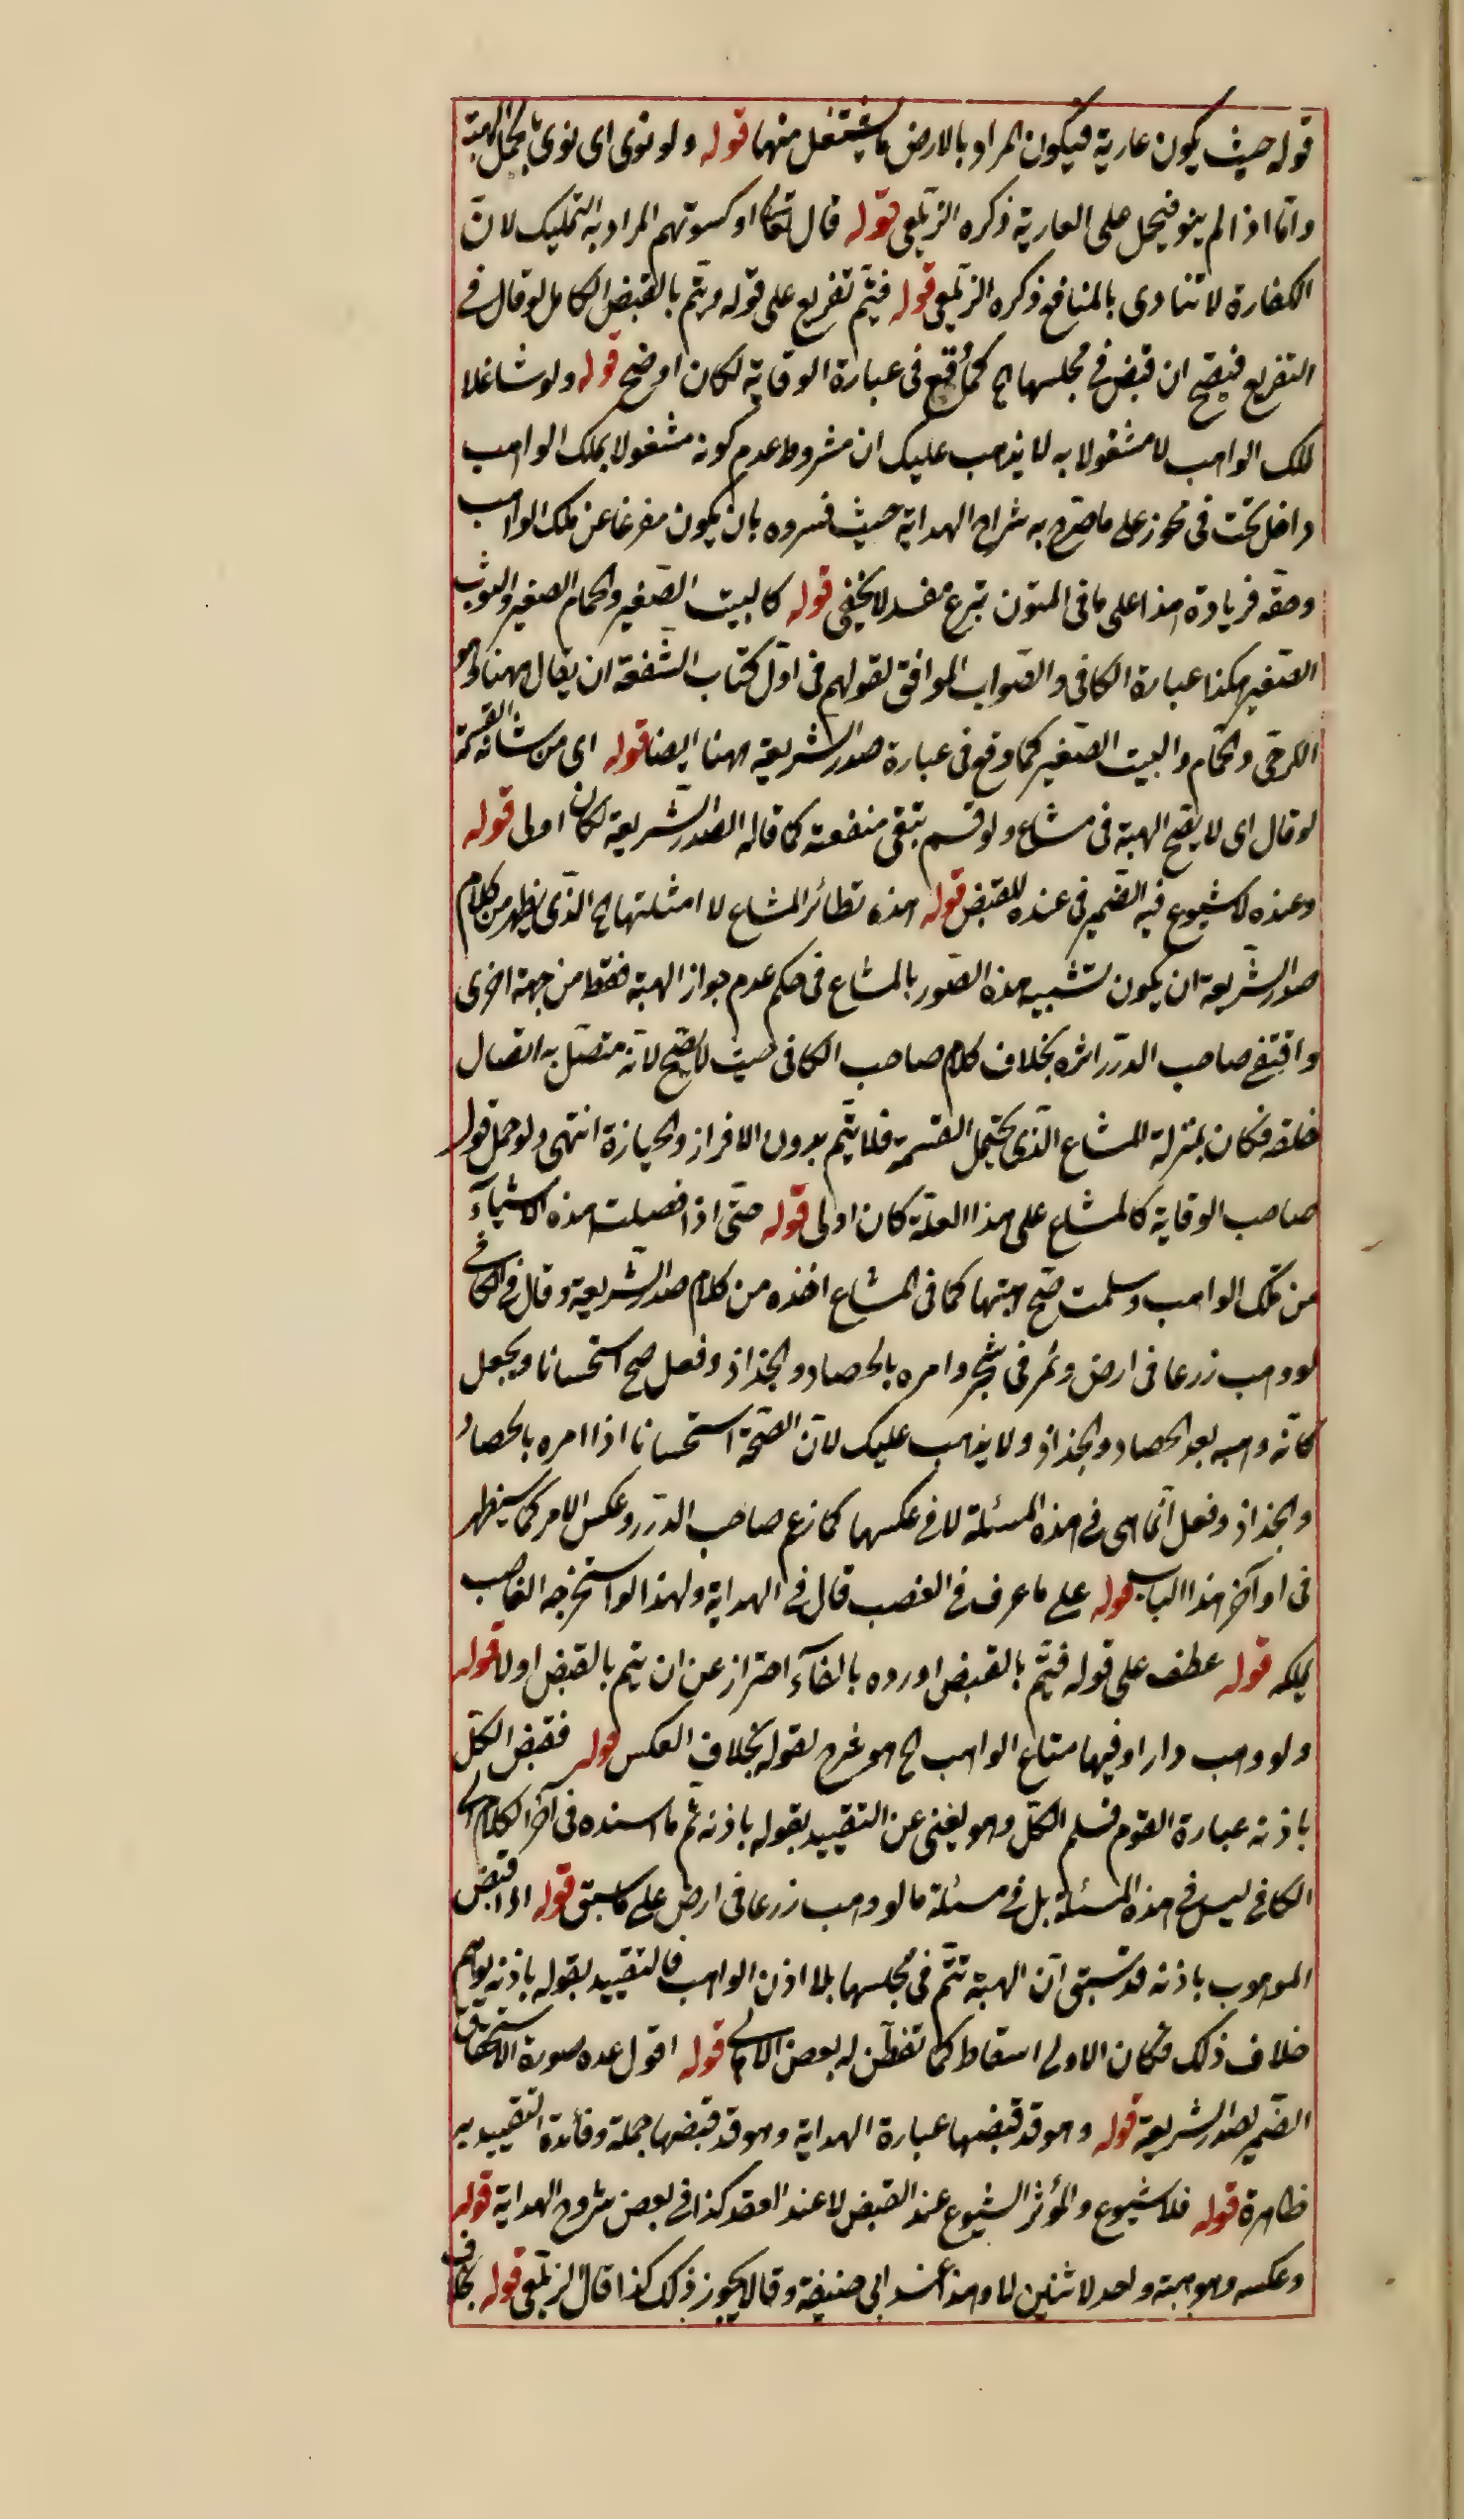 قوله حيث يكون عارية فيكون المراد بالارض ما يشتغل منها قوله ولو نوى اى نوى بالحمل الهبة
وامّا اذا لم ينو فيحمل على العارية ذكره الزيلعى قوله قال تعالى او كسوتهم المراد به التمليك لانّ
الكفارة لا تتادى بالمنافع ذكره الزيلعى قوله فيتم تفريع على قوله ويتم بالقبض الكامل لو قال فى
التفريع فيصحّ ان قبض فى مجلسها الخ كما وقع فى عبارة الوقاية لكان اوضح قوله ولو شاغلا
لملك الواهب لا مشغولا به لا يذهب عليك ان مشروط عدم كونه مشغولا بملك الواهب
داخل تحت فى محوز على ما صرّح به شراح الهداية حيث فسروه بان يكون مفرغا عن ملك الواهب
وحقّه فزيادة هذا على ما فى المتون تبرع مفسد لا يخفى قوله كالبيت الصّغير والحمام الصغير والثوب
الصّغير هكذا عبارة الكافى والصّواب الموافق لقولهم فى اوّل كتاب الشّفعة ان يقال ههنا وهو
الرحى والحمّام والبيت الصّغير كما وقع فى عبارة صدر الشريعة ههنا ايضا قوله اى من شانه القسمة
لو قال اى لا يصحّ الهبة فى مشاع ولو قسم يبقى منفعته كما قاله الصّدر الشّريعة لكان اولى قوله
وعنده لا شيوع فيه الضّمير فى عنده للقبض قوله هذه نظائر المشاع لا امثلتها الخ الّذى يظهر من كلام
صدر الشّريعة ان يكون تشبيه هذه الصّور بالمشاع فى حكم عدم جواز الهبة فقط من جهة اخرى
واقتفى صاحب الدّرر اثره بخلاف كلام صاحب الكافى حيث لا يصحّ لانّه متصّل به اتصال
خلقه فكان بمنزلة المشاع الّذى يحتمل القسمة فلا يتّم بدون الافراز والحيازة انتهى ولو حمل قول
صاحب الوقاية كالمشاع على هذا العلّة كان اولى قوله حتّى اذا فصلت هذه الاشيآء
من ملك الواهب وسلمت صحّ هبتها كما فى المشاع اخذه من كلام صدر الشّريعة وقال فى الكافى
لو وهب زرعا فى ارض وثمر فى شجر وامره بالحصاد والجذاذ وفعل صح استحسانا ويجعل
كانّه وهبه بعد الحصاد والجذاذ ولا يذهب عليك لانّ الصّحّة استحسانا اذا امره بالحصاد
والجذاذ وفعل انّما هى فى هذه المسئلة لا فى عكسها كما زعم صاحب الدّرر وعكس الامر كما سيظهر
فى اوآخر هذا الباب قوله على ما عرف فى الغصب قال فى الهداية ولهذا لو استخرجه الغاصب
يملكه قوله عطف على قوله فيتّم بالقبض اورده بالفآء احتراز عن ان يتم بالقبض اولا قوله
ولو وهب دارا وفيها متاع الواهب الخ هو شرح لقوله بخلاف العكس قوله فقبض الكلّ
باذنه عبارة القوم فسلم الكلّ وهو يغنى عن التقييد بقوله باذنه ثم ما اسنده فى آخر الكلام الى
الكافى ليس فى هذه المسئلة بل فى مسئلة ما لو وهب زرعا فى ارض على ما سبق قوله اذا قبض
الموهوب باذنه قد سبق انّ الهبة تتّم فى مجلسها بلا اذن الواهب فالتقييد بقوله باذنه يوهم
خلاف ذلك فكان الاولى اسقاط كما تفطّن له بعض الاهالى قوله اقول عده صورة الاستحقاق
الضّمير لصدر الشريعة قوله وهو قد قبضها عبارة الهداية وهو قد قبضها جملة وفائدة التقييد به
ظاهرة قوله فلا شيوع والمؤثر الشيوع عند القبض لا عند العقد كذا فى بعض شروح الهداية قوله
وعكسه وهو هبة واحد لاثنين لا وهذا عند ابى حنيفة وقالا يجوز ذلك كذا قال الزيلعى قوله بخلاف